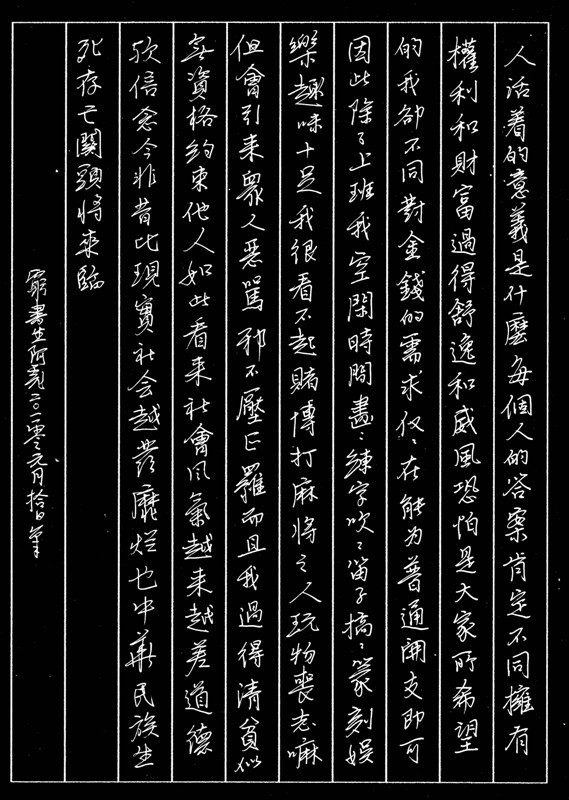 人活着的意義是什麼每個人的答案肯定不同擁有
權利和財富過得舒逸和威風恐怕是大家所希望
的我卻不同對金錢的需求仅〻在能为普通開支即可
因此除了上班我空閑時間盡〻練字吹〻笛子搞〻篆刻娱
樂趣味十足我很看不起賭博打麻將之人玩物喪志嘛
但會引来眾人惡罵邪不壓正囉而且我過得清貧似
無資格約束他人如此看来社會风氣越来越差道德
欣信愈今非昔比現實社会越發靡烂也中華民族生
死存亡関頭将来臨
窮書生阿亮二〇一零元月拾日筆